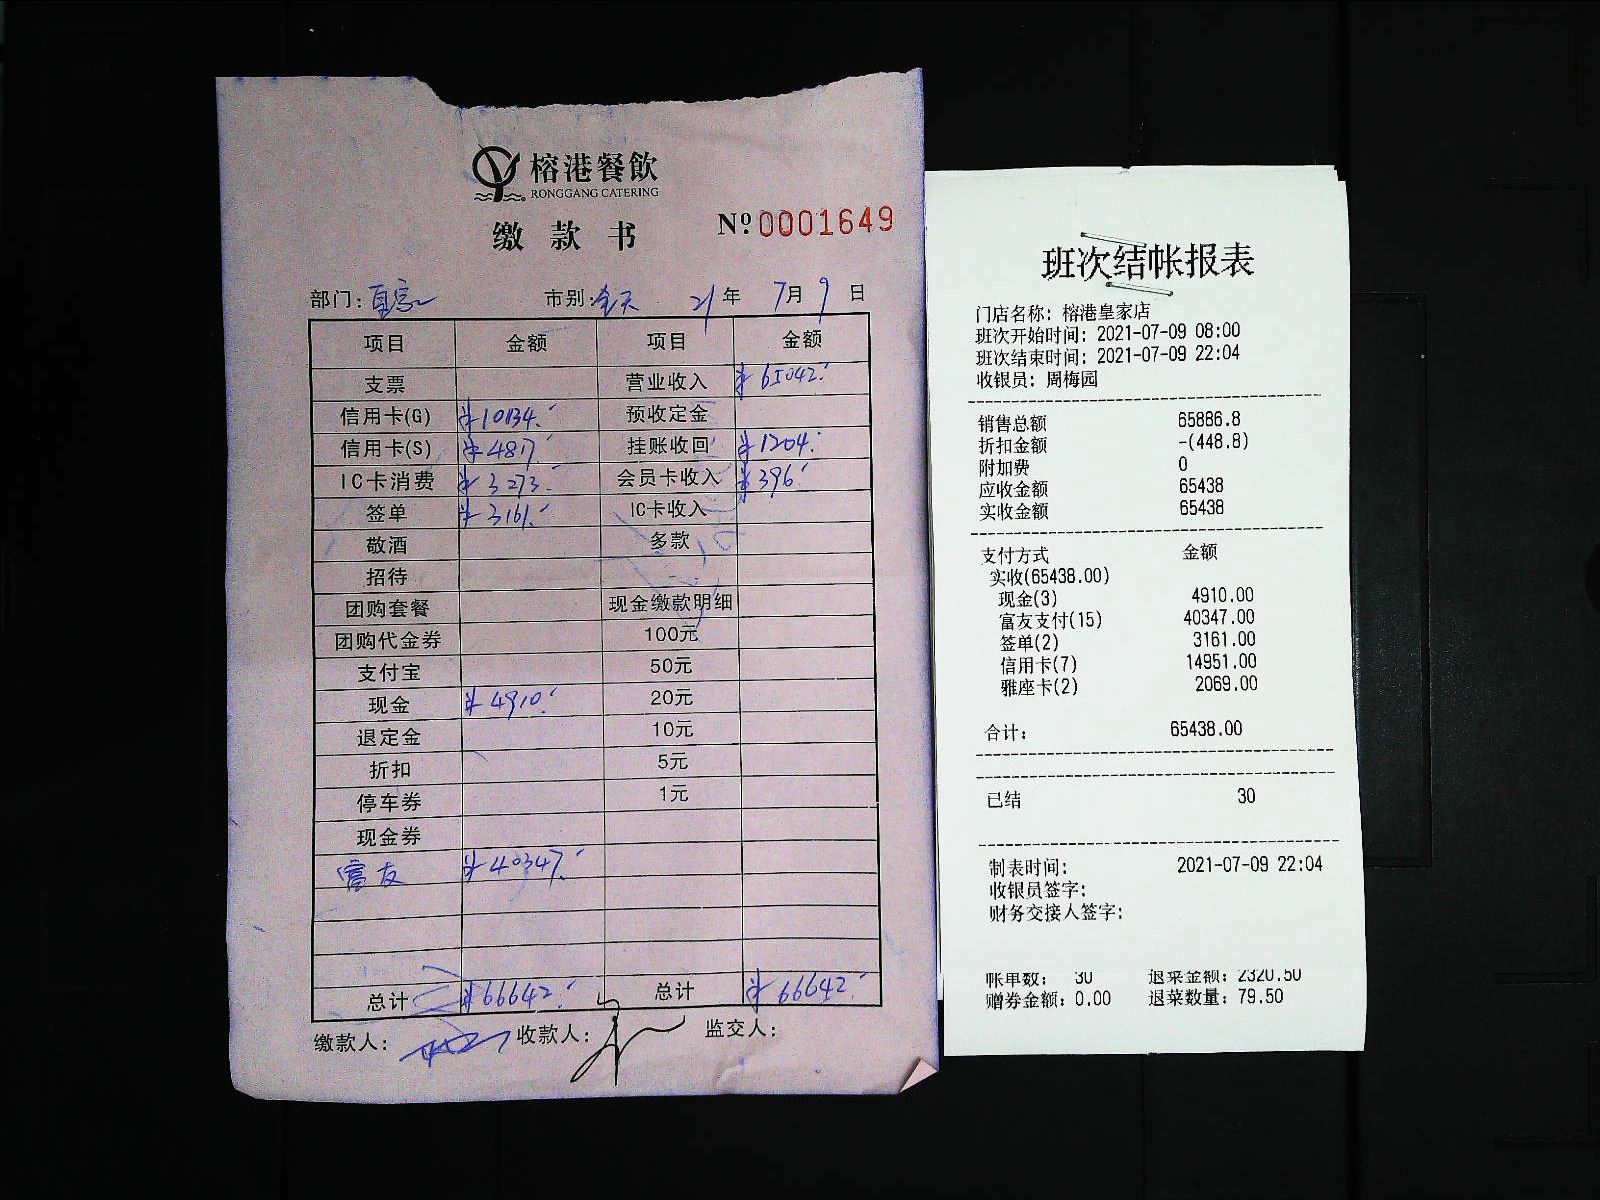 榕港餐飲
RONGGANG CATERING
缴款书 Nº 0001649
部门: 市别:全天 21年 7月 9日
项目 金额 项目 金额
支票 营业收入 ¥65042.-
信用卡(G) ¥10134.- 预收定金
信用卡(S) ¥4817 挂账收回 ¥1204.-
IC卡消费 ¥3273.- 会员卡收入 ¥396.-
签单 ¥3161.- IC卡收入
敬酒 多款
招待
团购套餐 现金缴款明细
团购代金券 100元
支付宝 50元
现金 ¥4910.- 20元
退定金 10元
折扣 5元
停车券 1元
现金券
富友 ¥40347.-
总计 ¥66642.- 总计 ¥66642.-
缴款人: 收款人: 监交人:
班次结帐报表
门店名称: 榕港皇家店
班次开始时间: 2021-07-09 08:00
班次结束时间: 2021-07-09 22:04
收银员: 周梅园
销售总额 65886.8
折扣金额 -(448.8)
附加费 0
应收金额 65438
实收金额 65438
支付方式 金额
实收(65438.00)
现金(3) 4910.00
富友支付(15) 40347.00
签单(2) 3161.00
信用卡(7) 14951.00
雅座卡(2) 2069.00
合计: 65438.00
已结 30
制表时间: 2021-07-09 22:04
收银员签字:
财务交接人签字:
帐单数: 30 退菜金额: 2320.50
赠券金额: 0.00 退菜数量: 79.50